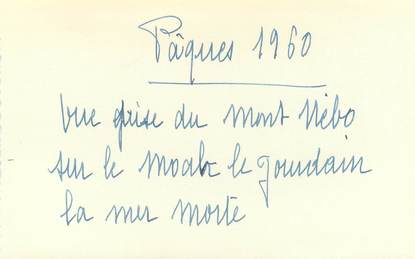 Pâques 1960
Vue prise du Mont Nébo
sur le Moab le Jourdain
la mer morte